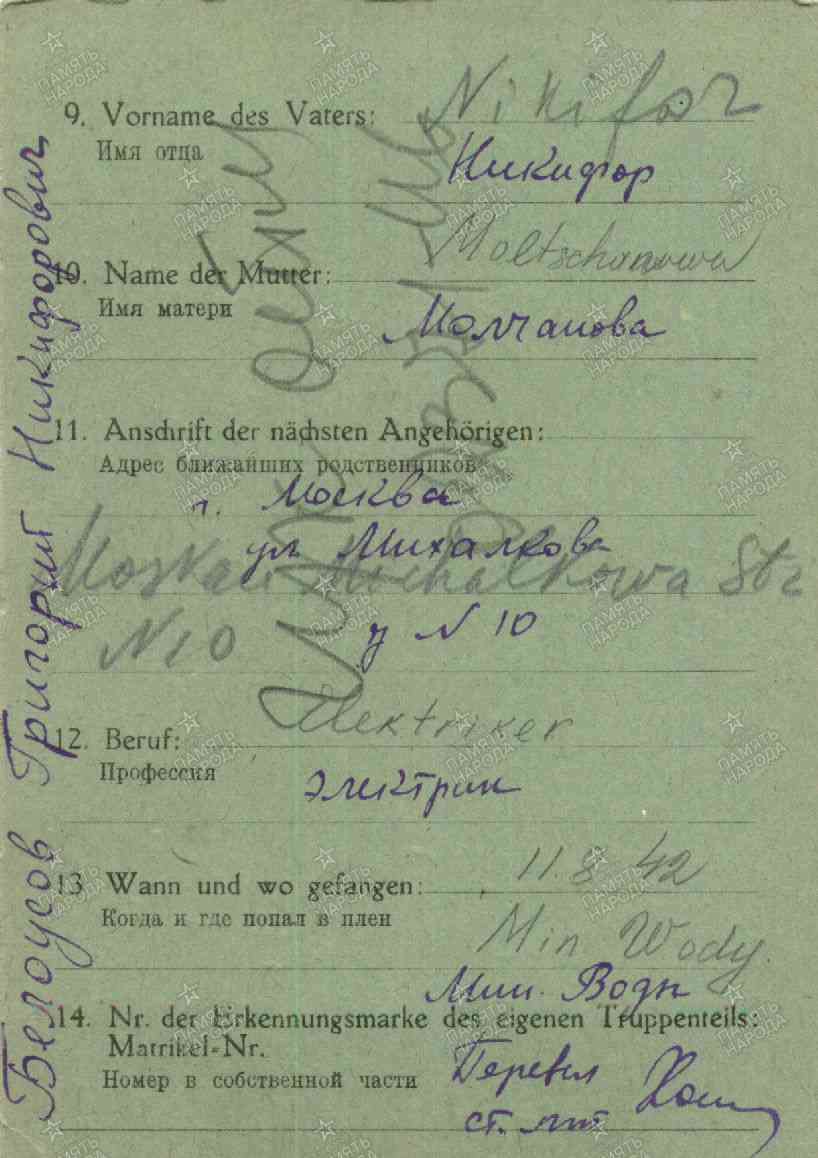 9. Vorname des Vaters: Nikifor
Имя отца Никифор
10. Name der Mutter: Moltschanowa
Имя матери Молчанова
11. Anschrift der nächsten Angehörigen:
Адрес ближайших родственников
г. Москва
ул Михалкова
Moskau Michalkowa Str
N 10 N 10
12. Beruf: Elektriker
Профессия электрик
13. Wann und wo gefangen: 11.8.42
Когда и где попал в плен Min Wody.
Мин. Воды
14. Nr. der Erkennungsmarke des eigenen Truppenteils:
Matrikel-Nr.
Номер в собственной части Перевел
ст.
Белоусов Григорий Никифорович
ПАМЯТЬ НАРОДА